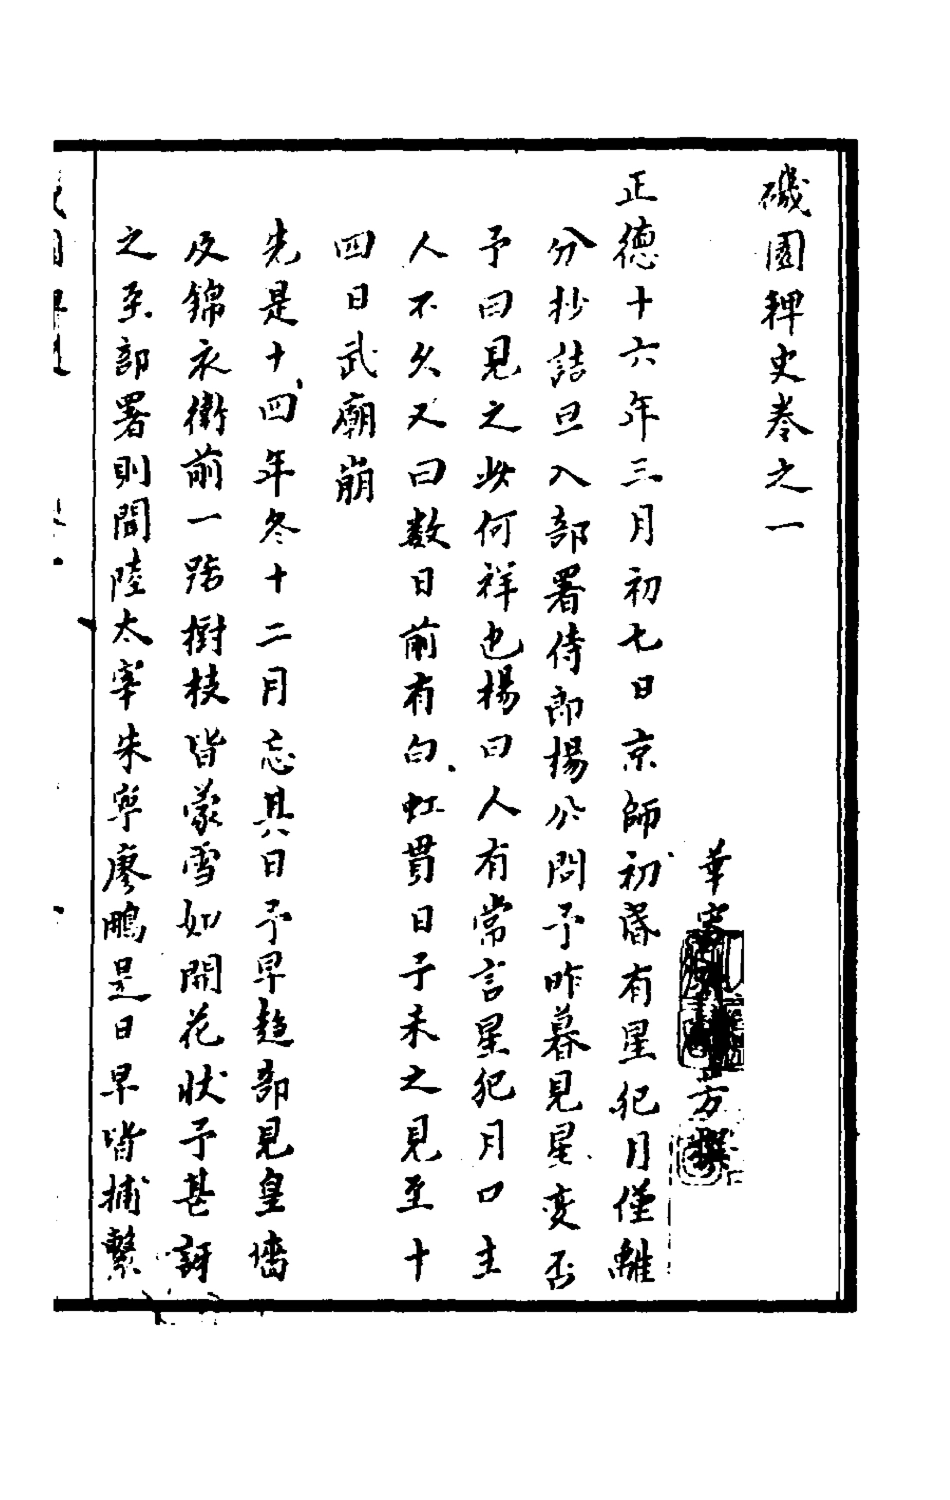 磯園稗史卷之一
華容 方撰
正德十六年三月初七日京師初昏有星犯月僅離
分抄詰旦入部署侍郎楊公問予昨暮見星变否
予曰見之此何祥也楊曰人有常言星犯月口主
人不久又曰数日前有白虹貫日予未之見至十
四日武廟崩
先是十四年冬十二月忘其日予早趋部見皇墻
及錦衣衛前一路樹枝皆蒙雪如開花狀予甚訝
之至部署則聞陸太宰朱寧廖鵬是日早皆捕繫